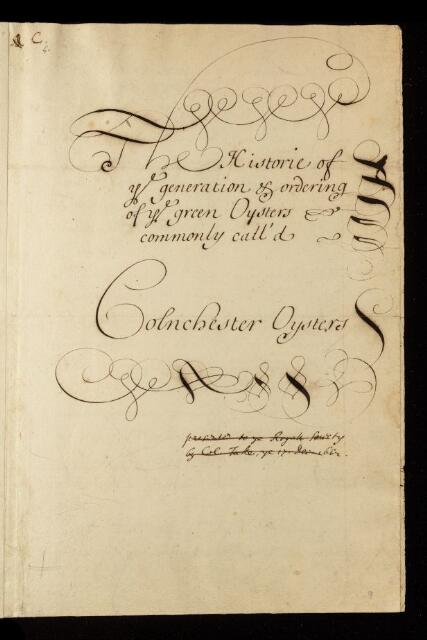 C.
The Historie of
yᵉ generation & ordering
of yᵉ green Oysters
commonly call'd
Colnchester Oysters
presented to ye Royall Society
by Col. Tuke, ye 17. Decemb.